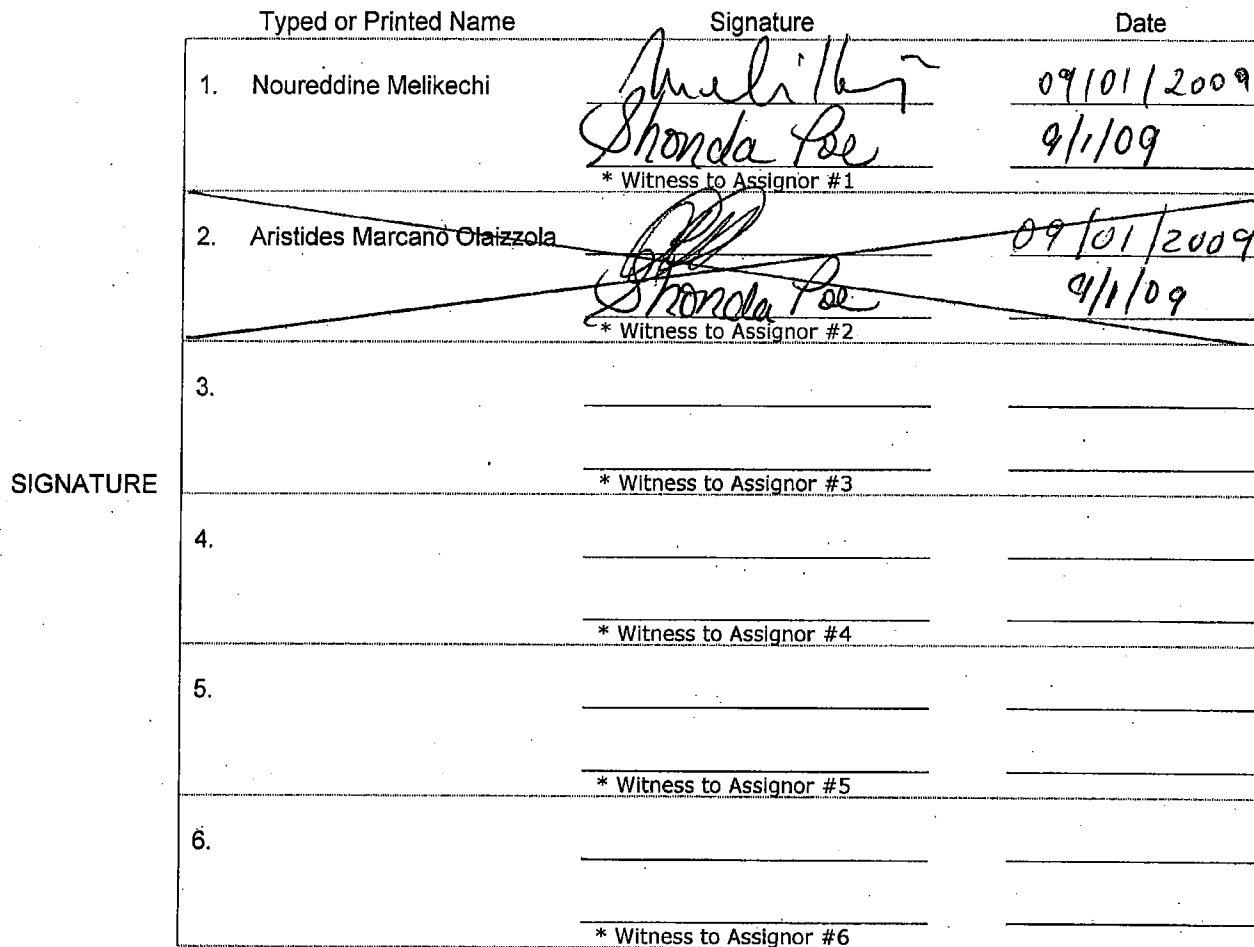 Typed or Printed Name Signature Date
1. Noureddine Melikechi 09/01/2009
Shonda Poe 9/1/09
* Witness to Assignor #1
2. Aristides Marcano Olaizzola 09/01/2009
Shonda Poe 9/1/09
* Witness to Assignor #2
3.
* Witness to Assignor #3
SIGNATURE
4.
* Witness to Assignor #4
5.
* Witness to Assignor #5
6.
* Witness to Assignor #6